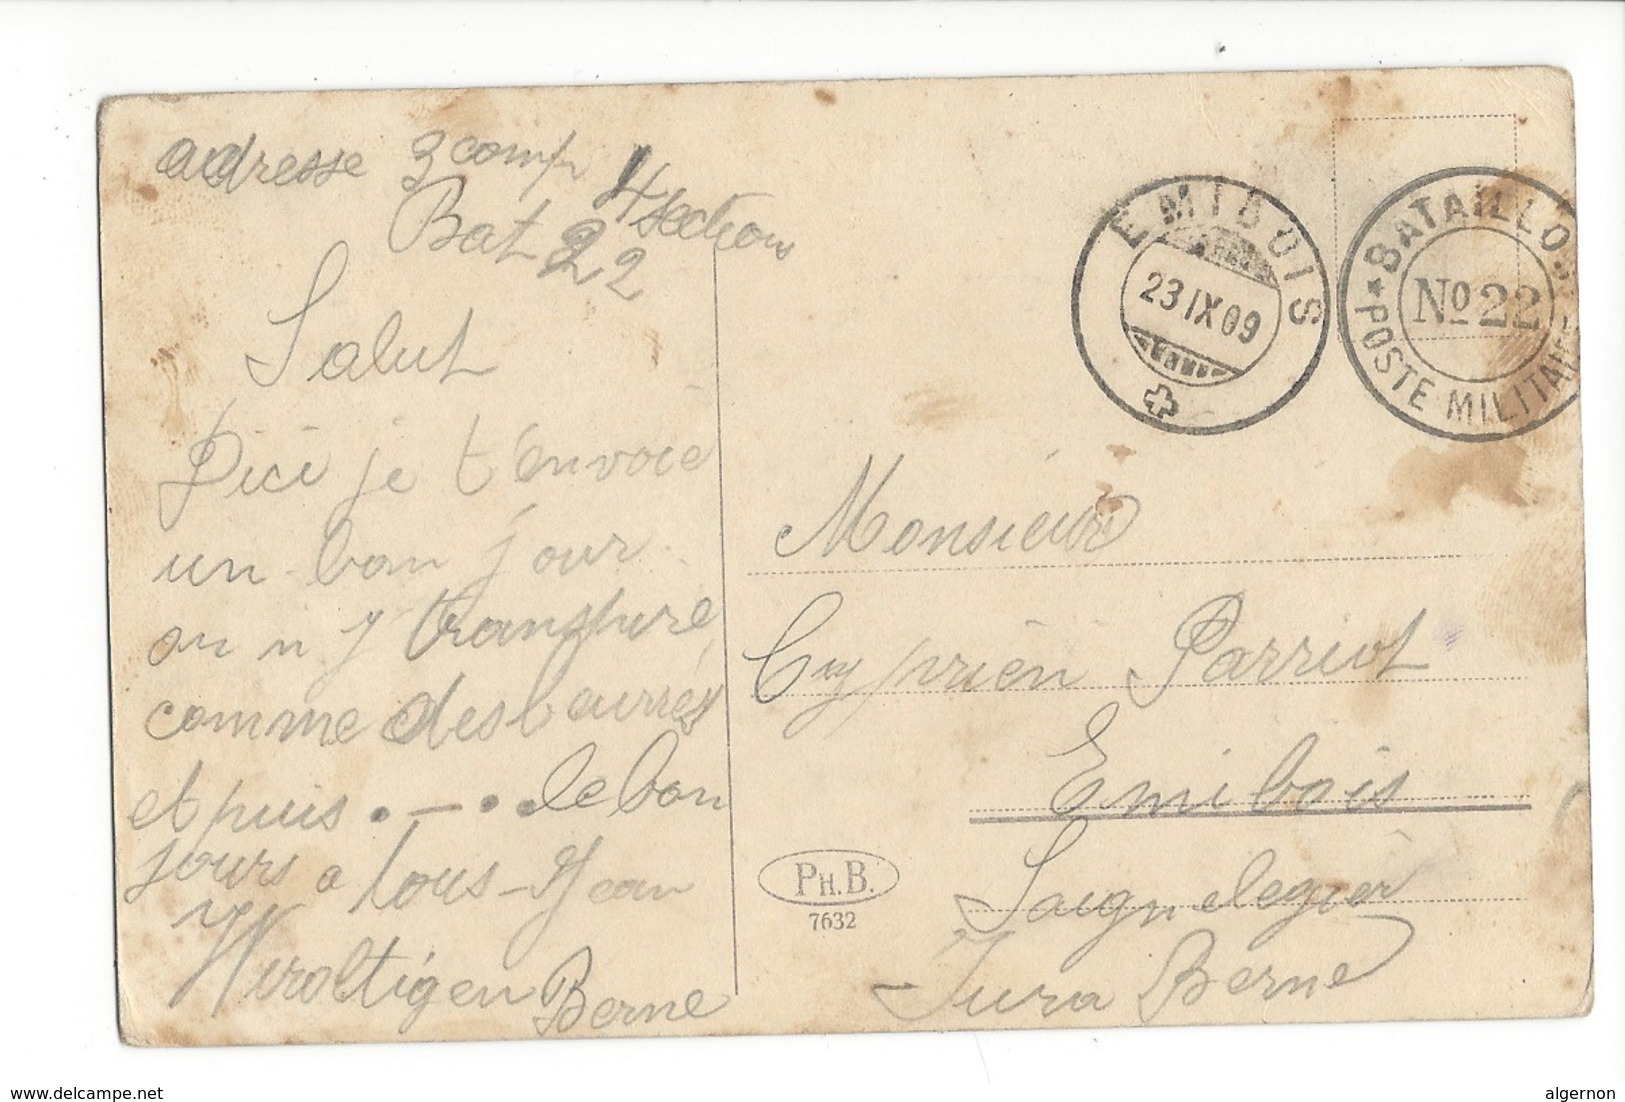 adresse 3 comp 4 sections
Bat 22
Salut
Dici je t'envoie
un bon jour
on n y transpire
comme des bourrés
et puis . — . le bon
jours a tous Jean
Wiroltigen Berne
EMIBOIS
23 IX 09
BATAILLON
No 22
* POSTE MILITAIRE
Monsieur
Cyprien Parriot
Emibois
Saignelegier
Jura Berne
PH. B.
7632
www.delcampe.net
algernon